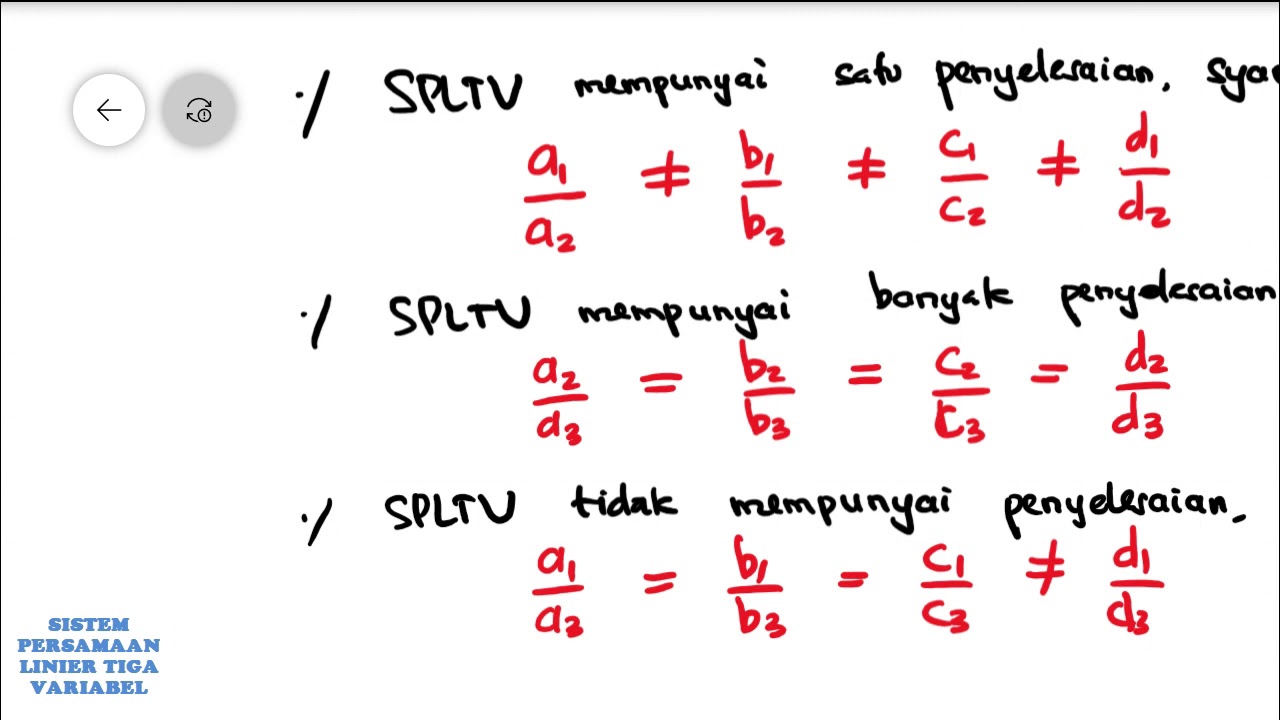 ·/ SPLTV mempunyai satu penyelesaian, sya
a1/a2 ≠ b1/b2 ≠ c1/c2 ≠ d1/d2
·/ SPLTV mempunyai banyak penyelesaian
a2/a3 = b2/b3 = c2/c3 = d2/d3
·/ SPLTV tidak mempunyai penyelesaian,
a1/a3 = b1/b3 = c1/c3 ≠ d1/d3
SISTEM
PERSAMAAN
LINIER TIGA
VARIABEL